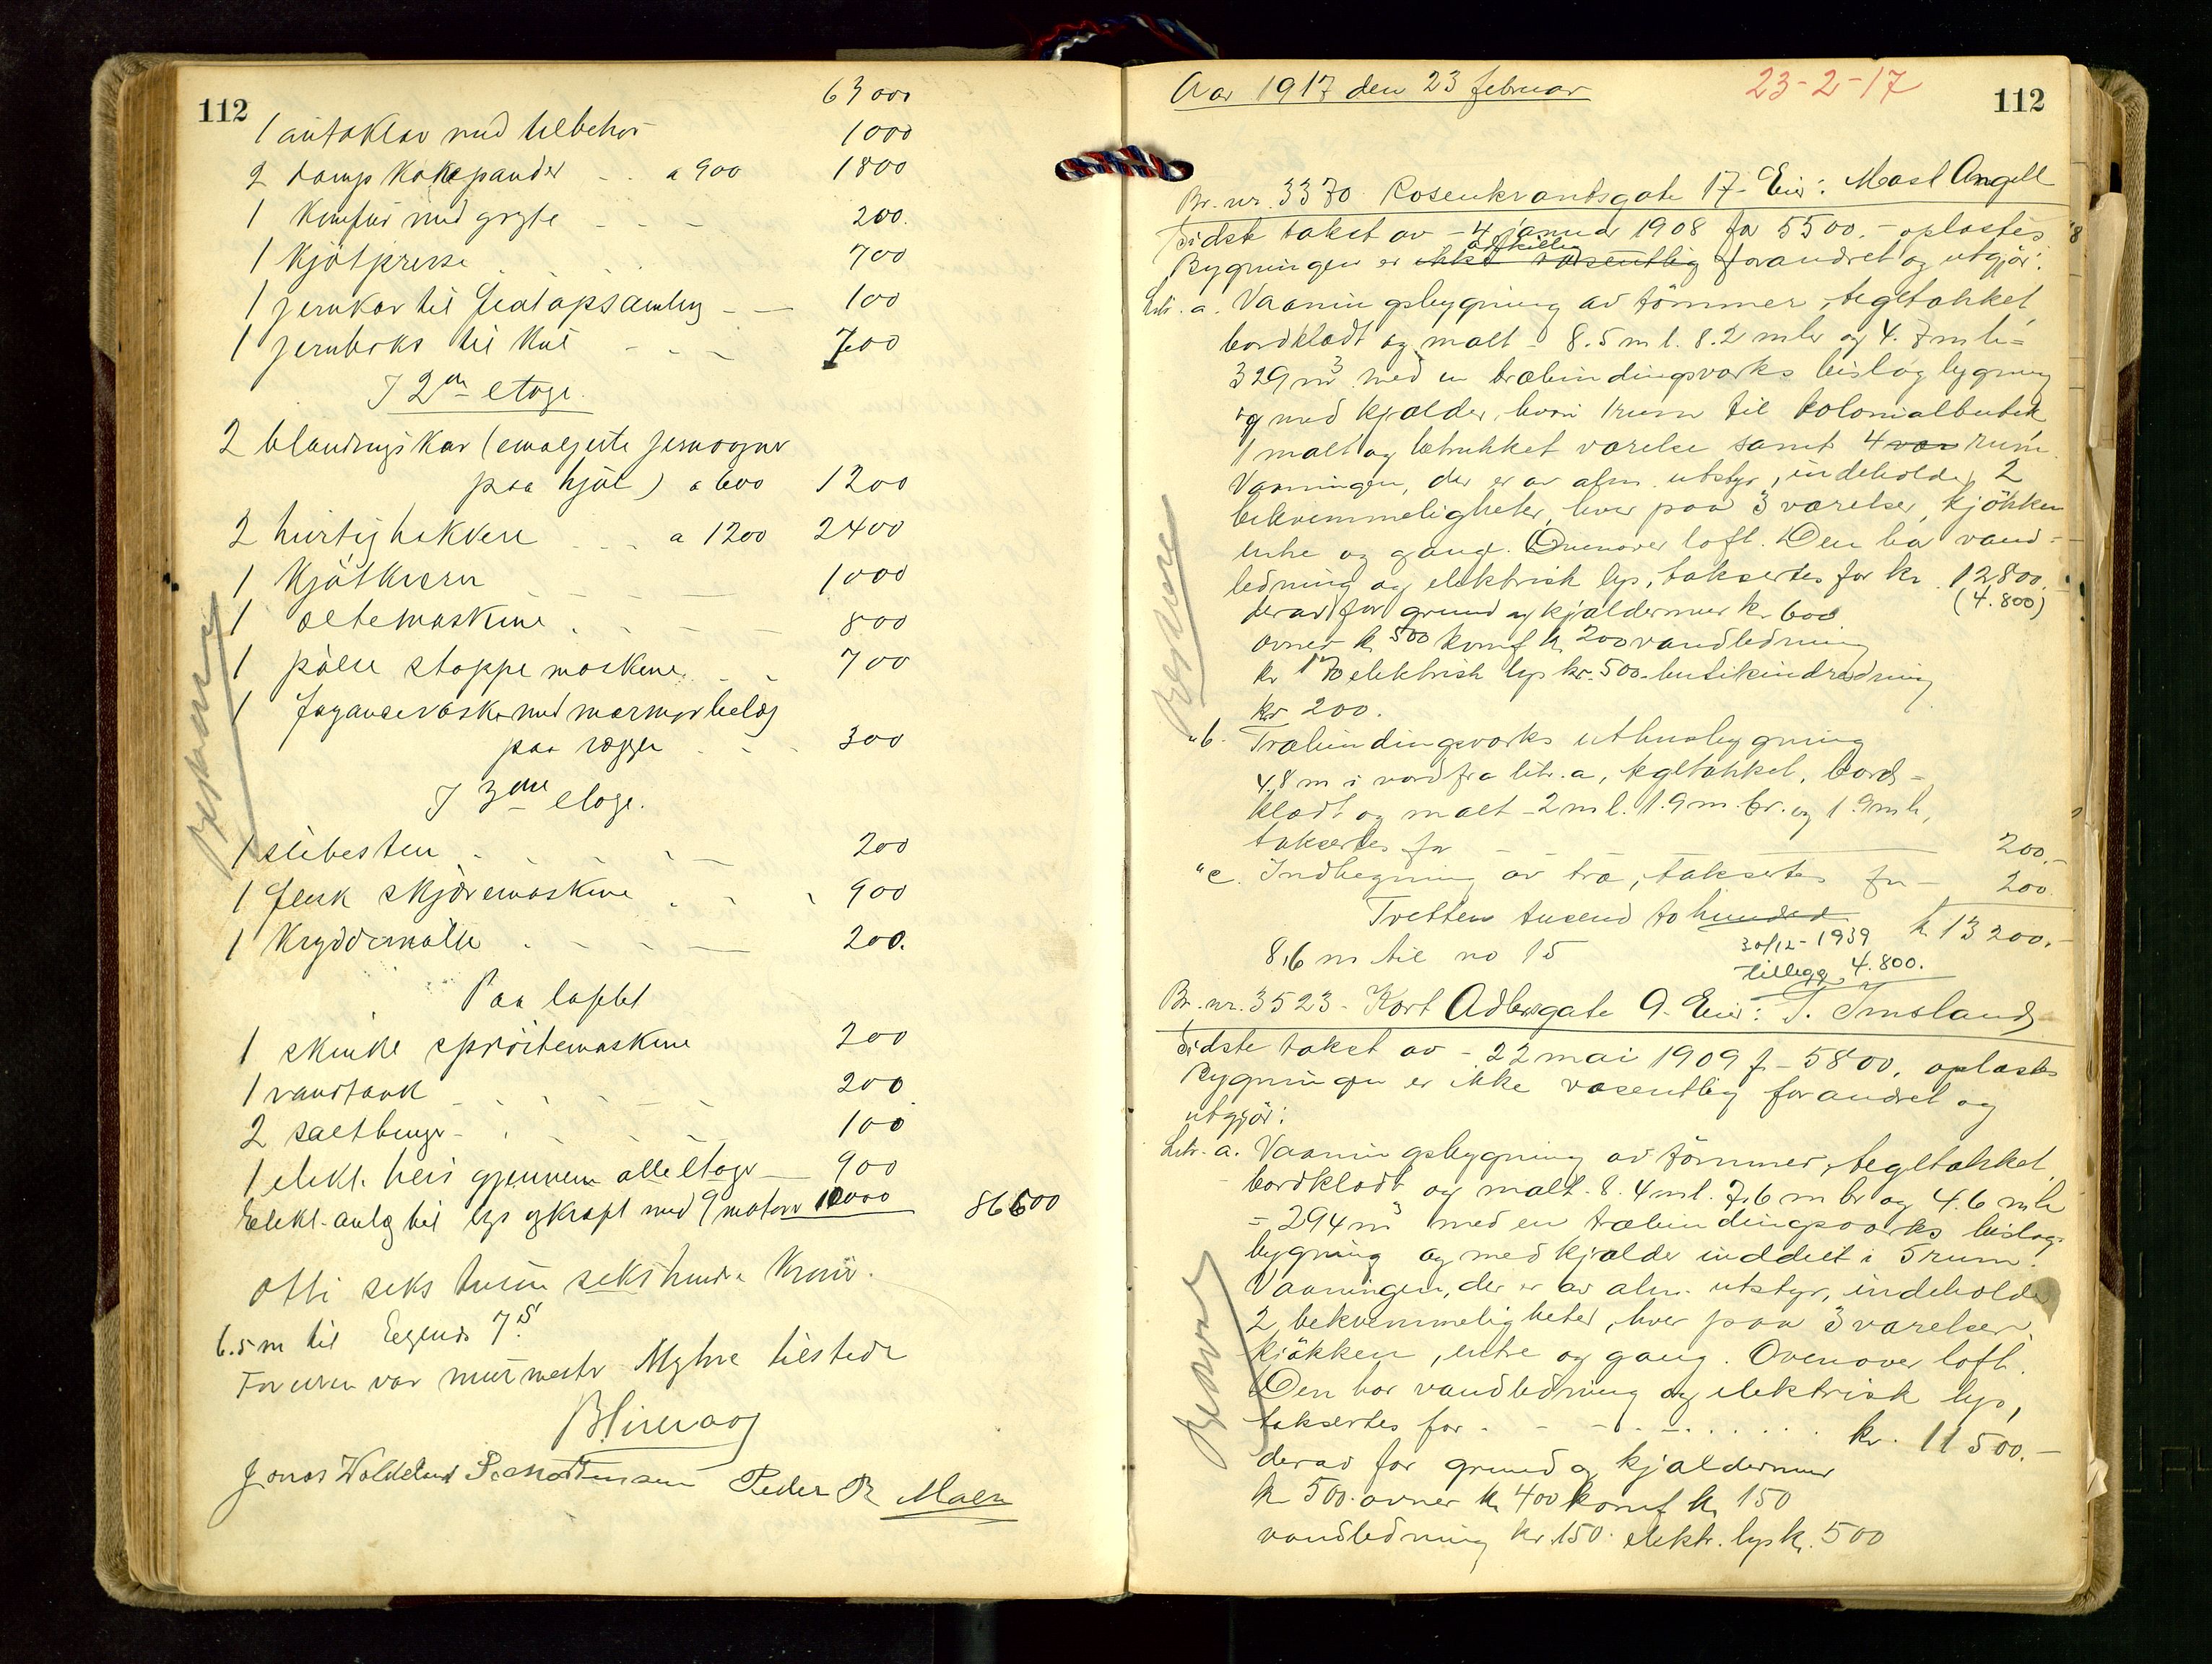 112
63000
1 autoklav med tilbehør 1000
2 damp kokepander - - a 900 1800
1 komfur med gryte - - - 200.
1 Kjøtpresse 700
1 jernkar til opsamling - - 100
1 jernboks til Kul - - - 700
I 2den etage.
2 blandingskar (emaljerte jernvogner
paa hjul) a 600 1200
2 hurtighakkere - - - a 1200 2400
1 Kjøtkvern 1000
1 æltemaskine 800
1 pølse stoppe maskine 700
1 med marmorbelæg
paa vægge 300
I 3die etage.
1 slibesten 200
1 flesk skjæremaskine 900
1 Kryddermølle 200.
Paa loftet
1 skinke sprøitemaskine 200
1 vandtank 200
2 saltbinger 100
1 elekt. heis gjennem alle etager 900
Elekt. anlæg til lys og kraft med 9 motorer 10000 86600
Otti seks tusen seks hundre Kroner.
6.5 m til
For eieren var murmester Myhre tilstede
Jonas Peder R Maen
Beskrevne
Aar 1917 den 23 februar
23-2-17
112
Br. nr. 3370 Rosenkrantsgate 17. Eier: Angell
Sidste takst av - 4 januar 1908 for 5500.- oplæstes
adskillig
Bygningen er ikke væsentlig forandret og utgjør:
Litr. a. Vaaningsbygning av tømmer, tegltækket,
bordklædt og malt - 8.5 m l. 8.2 m br og 4.7 m h =
329 m³ med en træbindingsværks bislagbygning
og med kjælder, hvori 1 rum til kolonialbutik
1 malt og betrukket værelse samt 4 vær rum.
Vaaningen, der er av alm. utstyr, indeholder 2
bekvemmeligheter, hver paa 3 værelser, kjøkken
entre og gang. Ovenover loft. Den har vand-
ledning og elektrisk lys, taksertes for kr. 12800.
(4.800)
derav for grund og kjældermur kr. 600
ovner kr 500 komf kr 200 vandledning
kr 170 elektrisk lys kr. 500. butikindredning
kr 200.
"b. Træbindingsværks uthusbygning
4.8 m i nord fra litr. a, tegltækket, bord-
klædt og malt - 2 m l. 1.9 m. br. og 1.9 m h,
taksertes for 200.-
"c. Indhegning av træ, taksertes for - 200.
Tretten tusend to hundred kr 13200.-
8,6 m til no 15
30/12-1939
tillegg 4.800.
Br. nr. 3523 - Kort Adlersgate 9. Eier: T. Imsland
Sidste takst av - 22 mai 1909 f - 5800. oplæstes
Bygningen er ikke væsentlig forandret og
utgjør:
Litr. a. Vaaningsbygning av tømmer, tegltækket,
bordklædt og malt. 8.4 m l. 7,6 m br og 4.6 m h
= 294 m³ med en træbindingsværks bislag-
bygning og med kjælder inddelt i 5 rum.
Vaaningen, der er av alm. utstyr, indeholder
2 bekvemmeligheter, hver paa 3 værelser
kjøkken, entre og gang. Ovenover loft.
Den har vandledning og elektrisk lys,
taksertes for - - - - kr. 11500.-
derav for grund og kjældermur
kr 500. ovner kr 400 komf kr 150
vandledning kr. 150. elektr. lys kr. 500